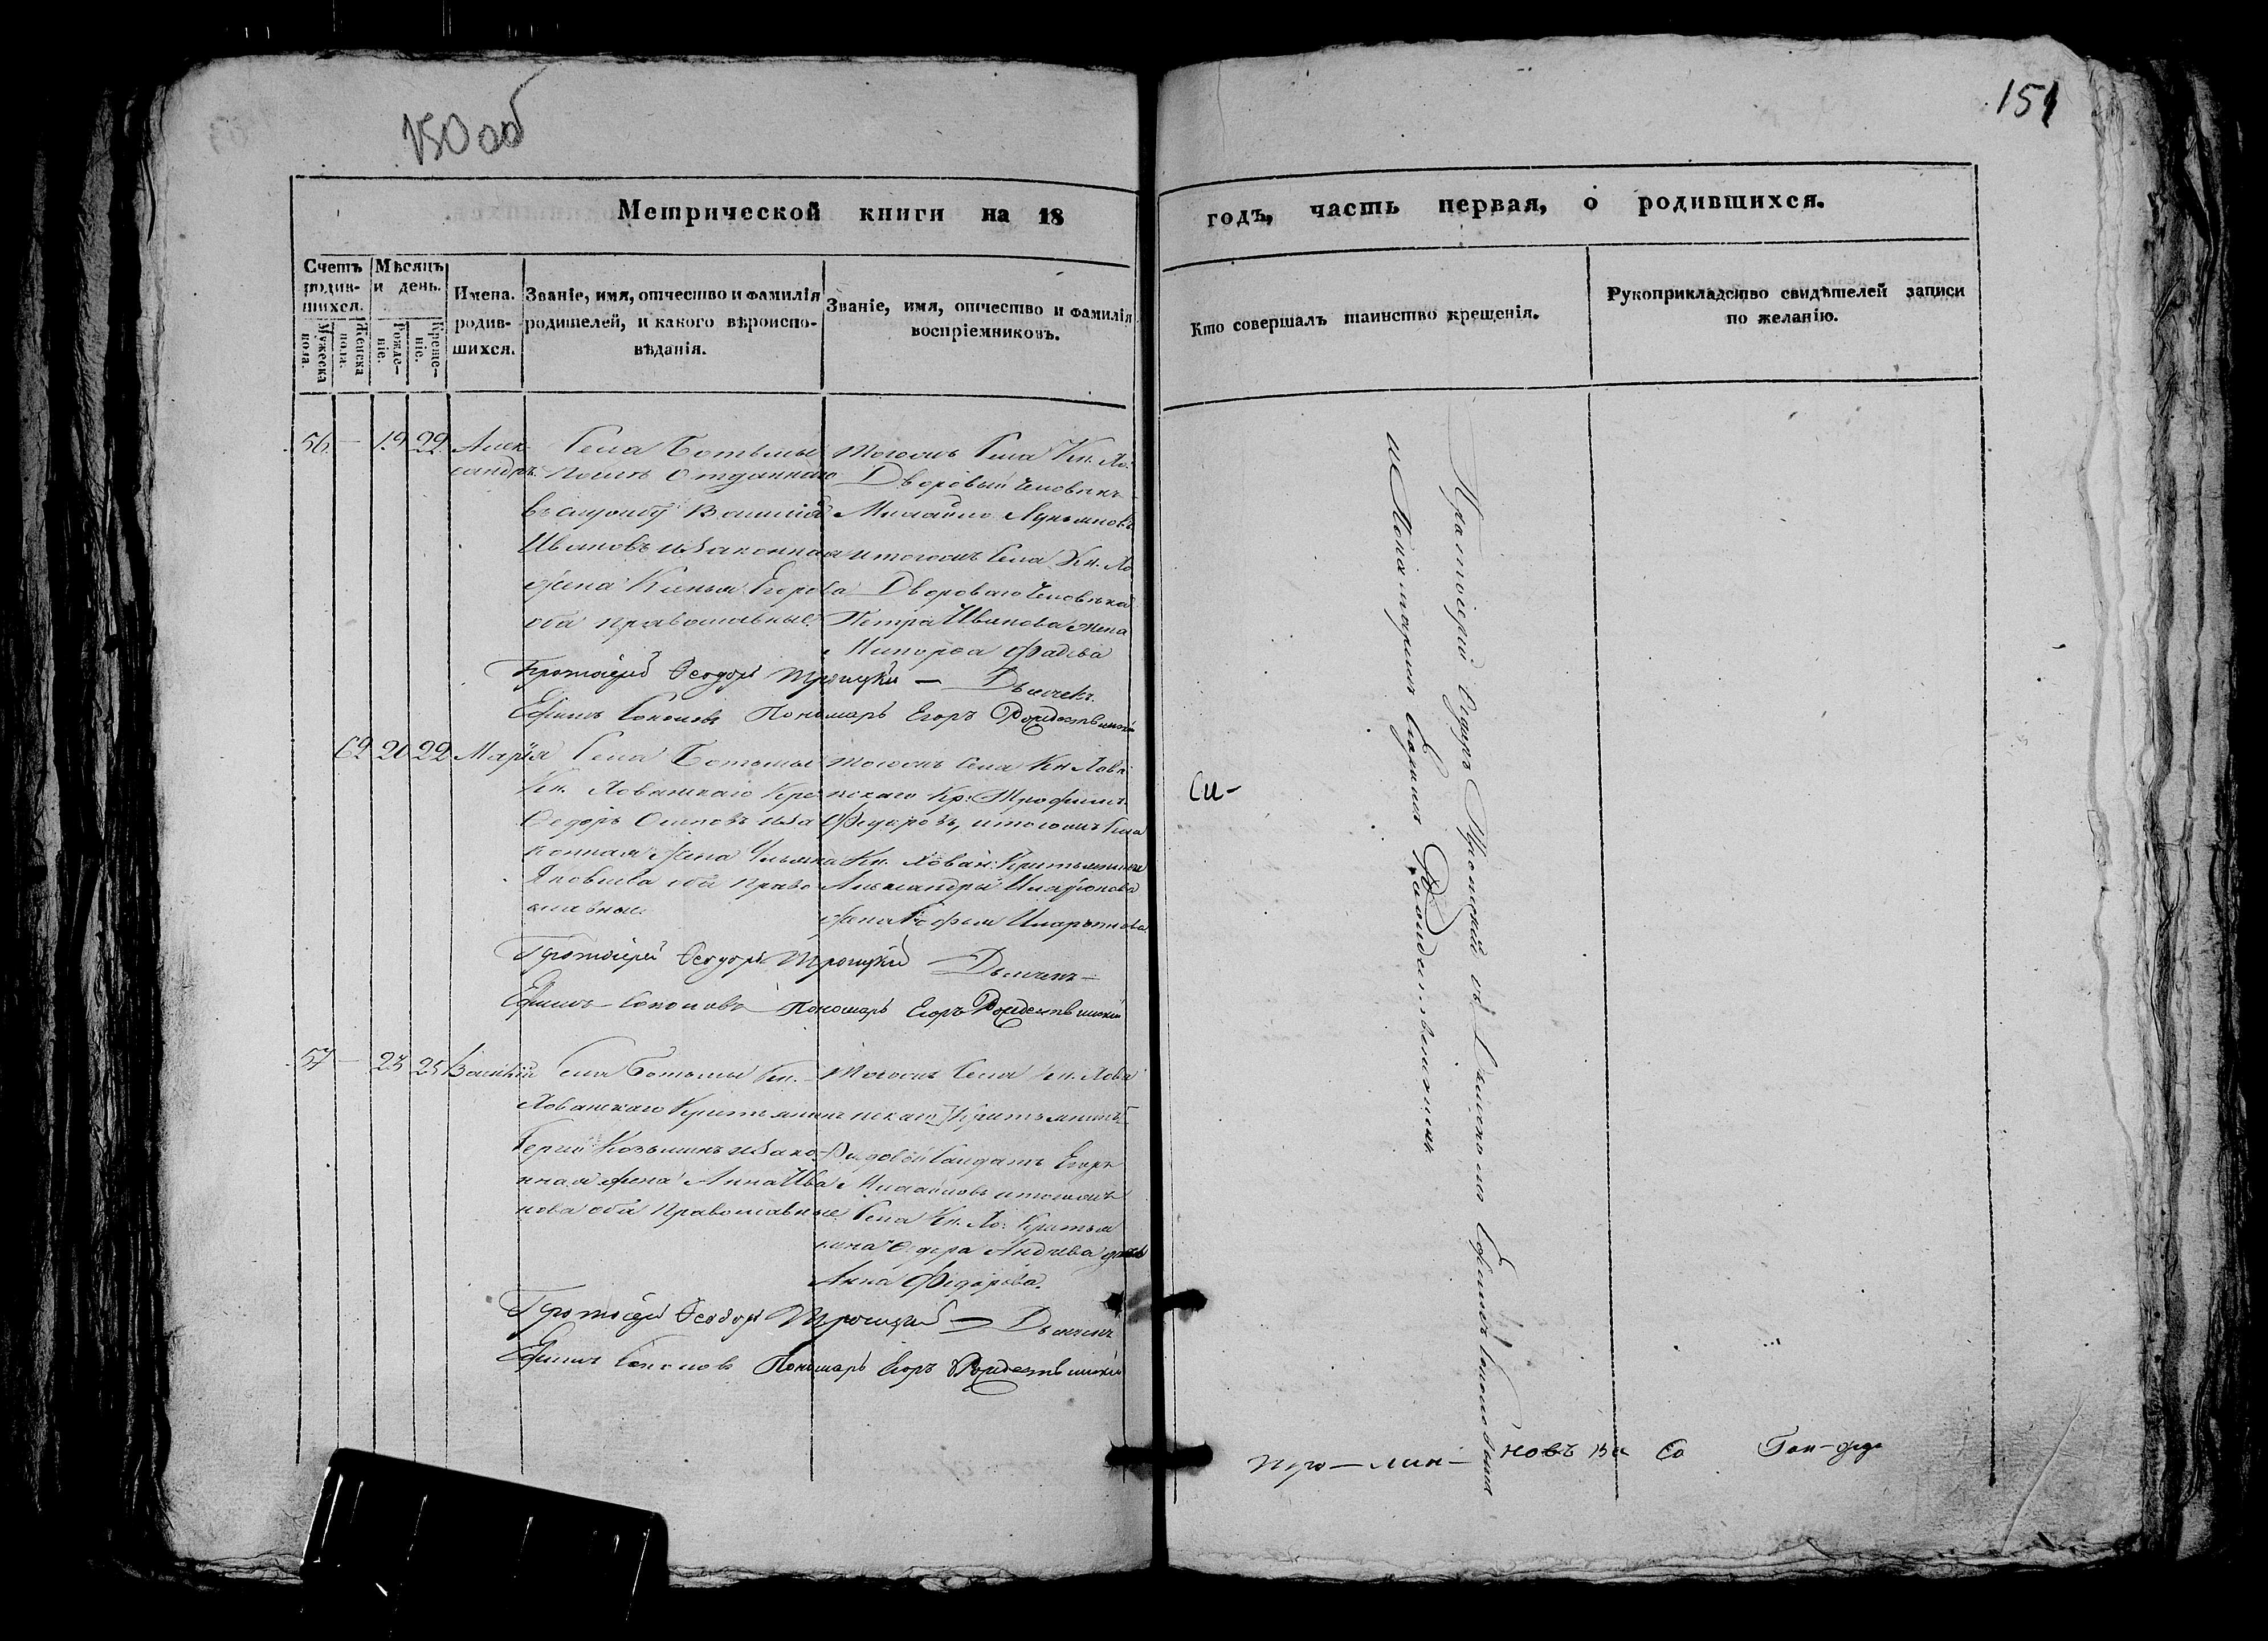 150 об
151
Метрической книги на 18
годъ, часть первая, о родившихся.
Счетъ родив-
шихся.
Мужеска пола.
Женска пола.
Мѣсяцъ
и день.
Рожде-
ніе.
Креще-
ніе.
Имена.
родив-
шихся.
Званіе, имя, отчество и фамилія
родителей, и какого вѣроиспо-
вѣданія.
Званіе, имя, отчество и фамилія
воспріемниковъ.
Кто совершалъ таинство крещенія.
Рукоприкладство свидѣтелей записи
по желанію.
56 — 19 22 Алек-
сандръ
Села Ботьмы
после Отданнаго
въ службу Василія
Ивановъ и законная
жена Егорова
оба православные.
Тогожъ Села Кн. Хо.
Дворовый Человѣкъ
Михайло Лукьяновъ
и тогожъ Села Кн. Хо
Двороваго Человѣка
Петра Иванова жена
Фадѣева
Протоіерей Ѳеодоръ Троицкій — Дьячекъ
Ефимъ Соколовъ Пономарь Егоръ Рождественскій
62 20 22 Марія
Села Ботьмы
Кн. Хованскаго Кре
Ѳедоръ Осиповъ и за
конная жена Ульяна
Яковлева оба право
славные.
тогожъ Села Кн Хова
нскаго Кр: Трофимъ
Федоровъ, и тогожъ Села
Кн. Хован: Крестьянина
Александра Иларіонова
жена
Протоіерей Ѳеодоръ Троицкій Дьячекъ —
Ефимъ Соколовъ Пономарь Егоръ Рождественскій
57 — 23 25 Василій
Села Ботьмы Кн.
Хованскаго Крестьянинъ
Сергей Козьминъ и зако
нная жена Анна Ива
нова оба Православные
Тогожъ Села Кн. Хова
нскаго Крестьянинъ
Солдатъ Егоръ
Михайловъ и тогожъ
Села Кн. Хо: Крестья
нина Ѳедора Андреева дочь
Анна Федорова.
Протоіерей Ѳеодоръ Троицкій — Дьячекъ
Ефимъ Соколовъ Пономарь Егоръ Рождественскій
Протоіерей Ѳедоръ Троицкій съ Дьячкомъ Ефимомъ Соколовымъ
и Пономаремъ Егоромъ Рождественскимъ
Си-
новъ